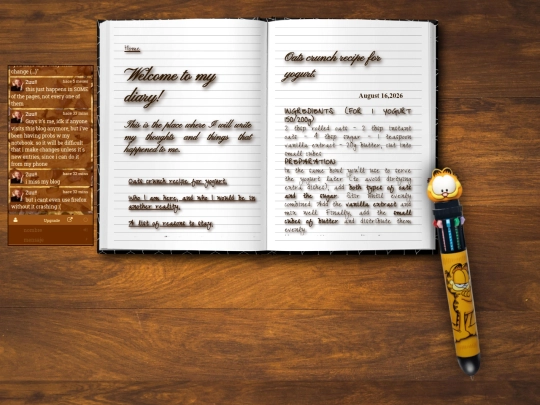 change (...)"
Zuu!!
this just happens in SOME
of the pages, not every one of
them
Zuu!!
Guys it's me, idk if anyone
visits this blog anymore, but i've
been having probs w my
notebook, so it will be difficult
that i make changes unless it's
new entries, since i can do it
from my phone
Zuu!!
i miss my blog
Zuu!!
but i cant even use firefox
without it crashing (
Upgrade
Home
Welcome to my
diary!
This is the place where I will write
my thoughts and things that
happened to me.
Oats crunch recipe for yogurt
Who I am here, and who I would be in
another reality.
A list of reasons to stay.
Oats crunch recipe for
yogurt
August 16,2026
INGREDIENTS (FOR 1 YOGURT
150/200g)
2 tbsp rolled oats - 2 tbsp instant
oats - 4 tbsp sugar - 1 teaspoon
vanilla extract - 20g butter, cut into
small cubes
PREPARATION
In the same bowl you'll use to serve
the yogurt later (to avoid dirtying
extra dishes), add both types of oats
and the sugar. Stir until evenly
combined. Add the vanilla extract and
mix well. Finally, add the small
cubes of butter and distribute them
evenly.